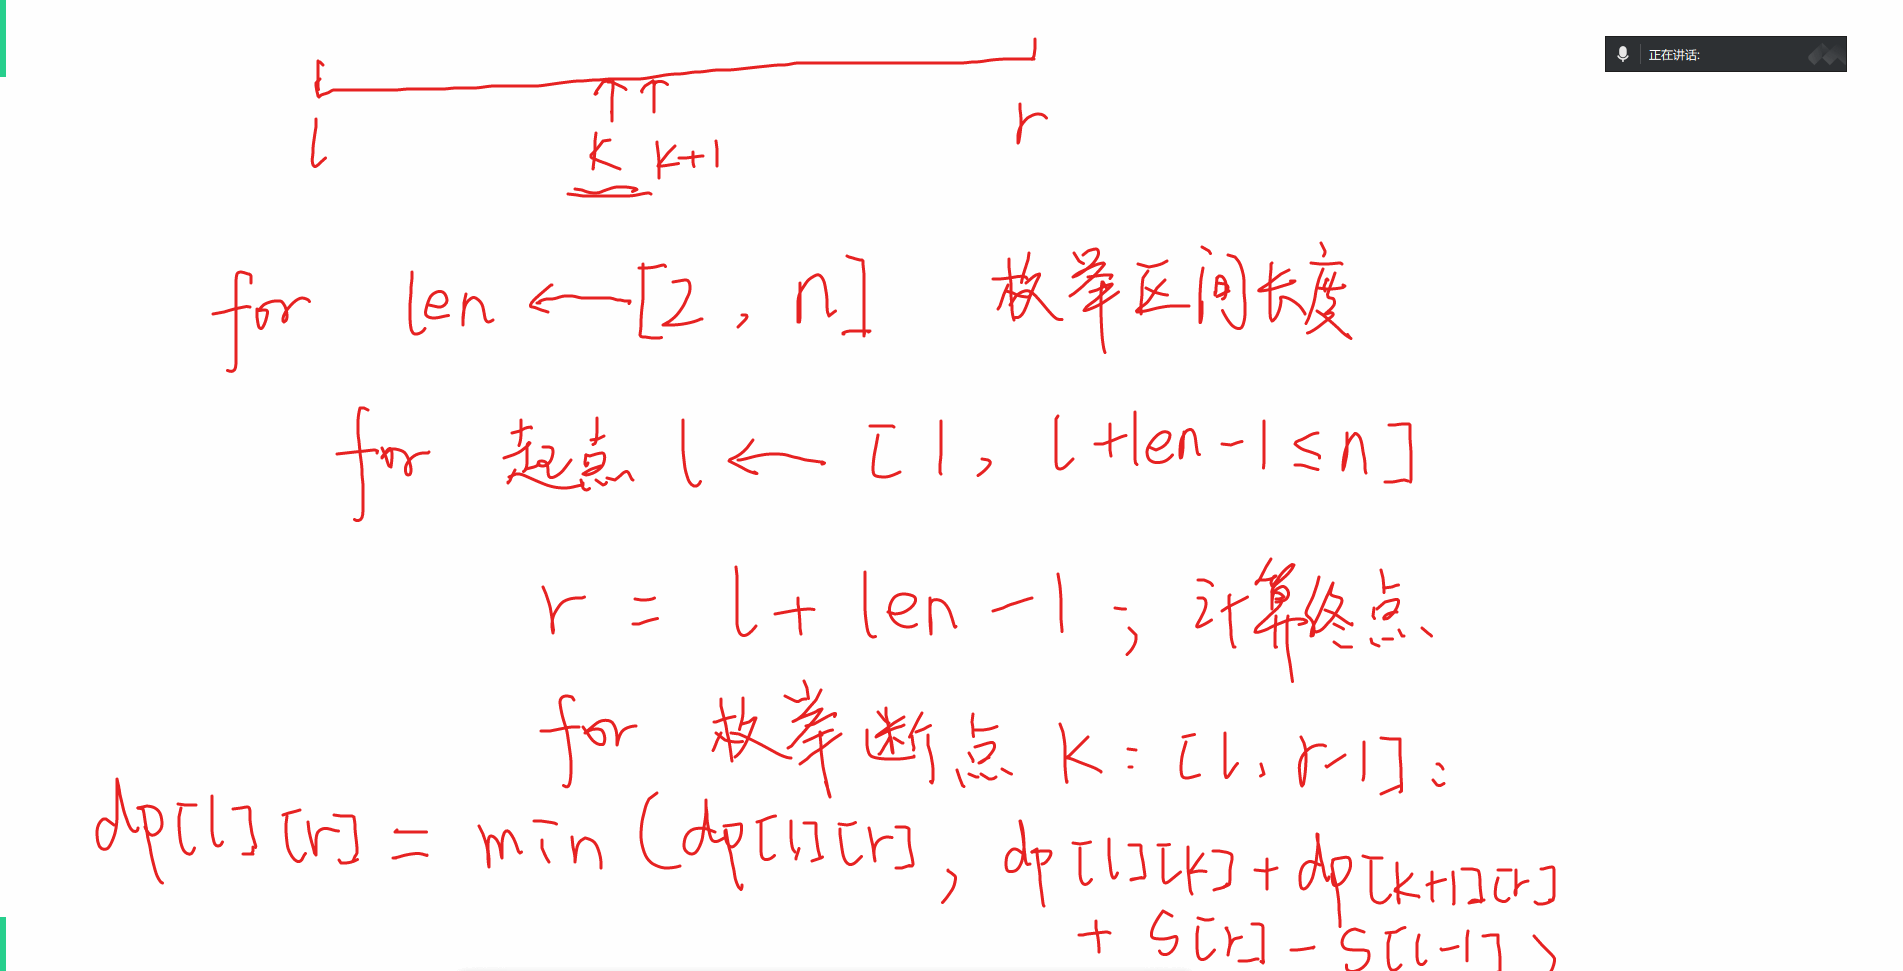 正在讲话:
l r
k k+1
for len ← [2, n] 枚举区间长度
for 起点 l ← [1, l+len-1≤n]
r = l+len-1; 计算终点
for 枚举断点 k = [l, r-1]:
dp[l][r] = min(dp[l][r], dp[l][k]+dp[k+1][r]
+ S[r] - S[l-1])